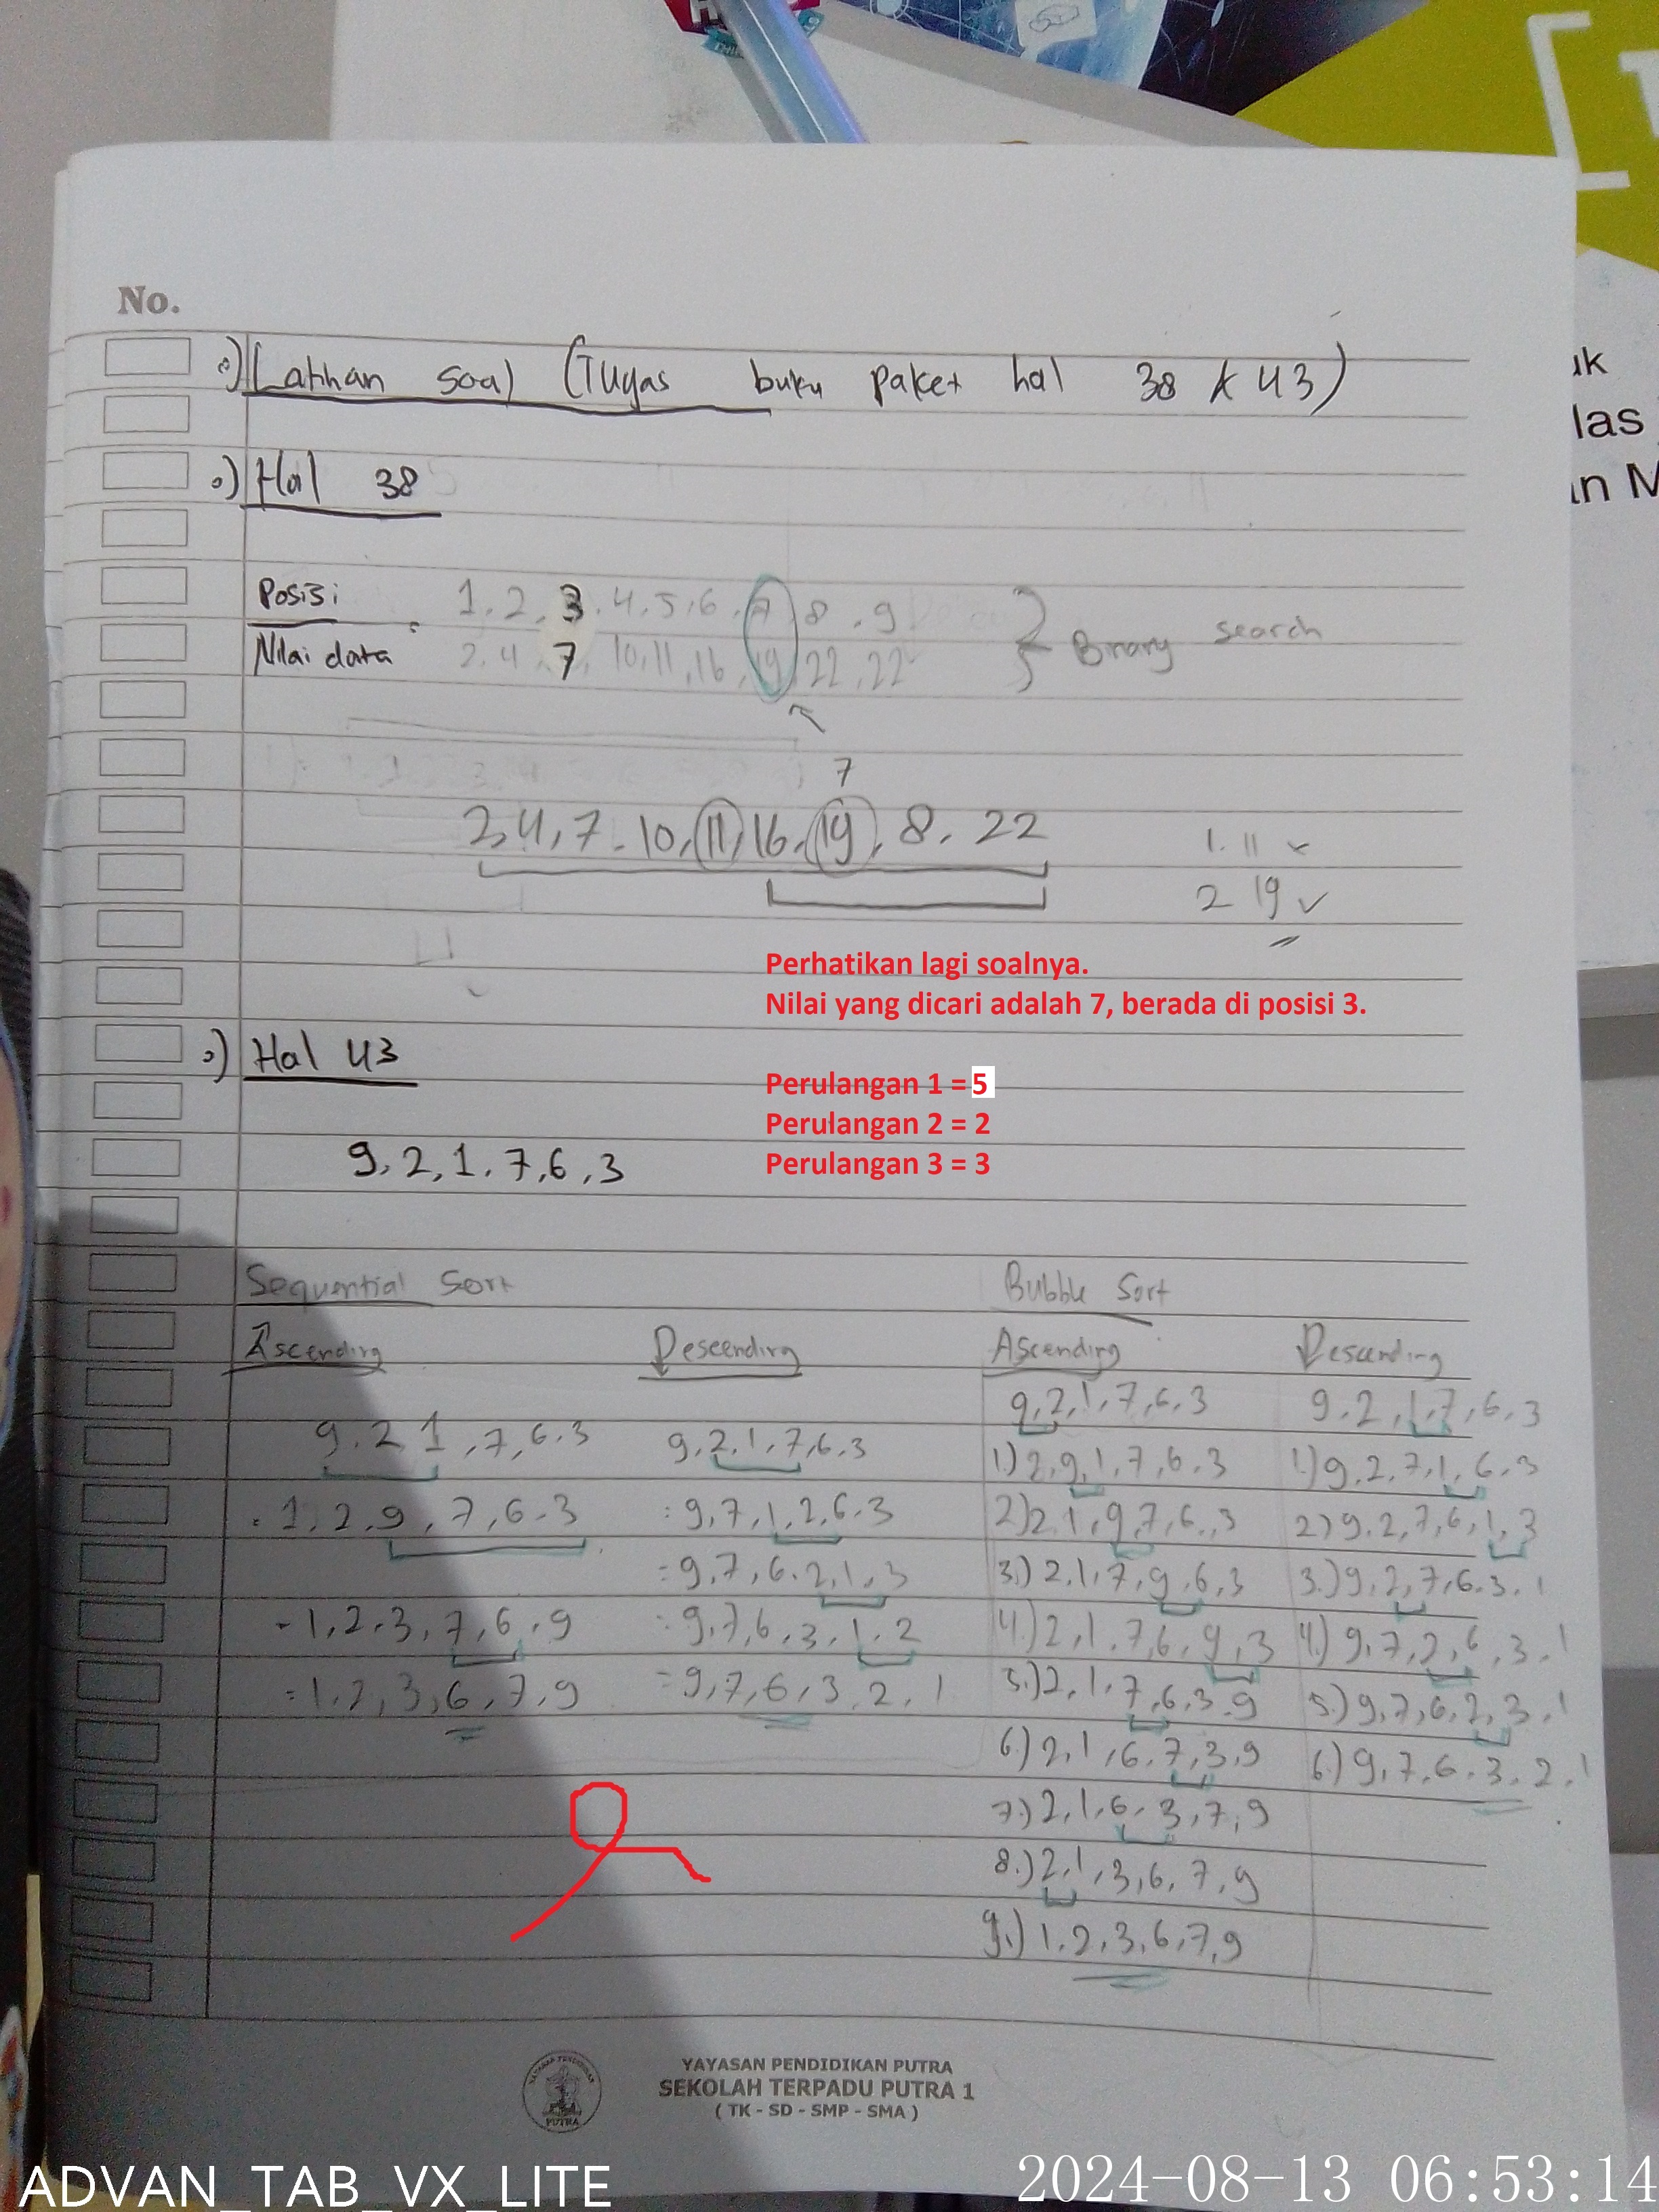 No.
Latihan soal (Tugas buku paket hal 38 & 43)
Hal 38
Posisi : 1, 2, 3, 4, 5, 6, 7, 8, 9
Nilai data 2, 4, 7, 10, 11, 16, 19, 22, 22
Binary search
7
2, 4, 7, 10, 11, 16, 19, 8, 22
1. 11 ✓
2 19 ✓
Perhatikan lagi soalnya.
Nilai yang dicari adalah 7, berada di posisi 3.
Hal 43
Perulangan 1 = 5
Perulangan 2 = 2
Perulangan 3 = 3
9, 2, 1, 7, 6, 3
Sequential Sort
Ascending
9, 2, 1, 7, 6, 3
= 1, 2, 9, 7, 6, 3
= 1, 2, 3, 7, 6, 9
= 1, 2, 3, 6, 7, 9
Descending
9, 2, 1, 7, 6, 3
= 9, 7, 1, 2, 6, 3
= 9, 7, 6, 2, 1, 3
= 9, 7, 6, 3, 1, 2
= 9, 7, 6, 3, 2, 1
Bubble Sort
Ascending
9, 2, 1, 7, 6, 3
1.) 2, 9, 1, 7, 6, 3
2.) 2, 1, 9, 7, 6, 3
3.) 2, 1, 7, 9, 6, 3
4.) 2, 1, 7, 6, 9, 3
5.) 2, 1, 7, 6, 3, 9
6.) 2, 1, 6, 7, 3, 9
7.) 2, 1, 6, 3, 7, 9
8.) 2, 1, 3, 6, 7, 9
9.) 1, 2, 3, 6, 7, 9
Descending
9, 2, 1, 7, 6, 3
1.) 9, 2, 7, 1, 6, 3
2.) 9, 2, 7, 6, 1, 3
3.) 9, 2, 7, 6, 3, 1
4.) 9, 7, 2, 6, 3, 1
5.) 9, 7, 6, 2, 3, 1
6.) 9, 7, 6, 3, 2, 1
YAYASAN PENDIDIKAN PUTRA
SEKOLAH TERPADU PUTRA 1
( TK - SD - SMP - SMA )
PUTRA
ADVAN_TAB_VX_LITE
2024-08-13 06:53:14